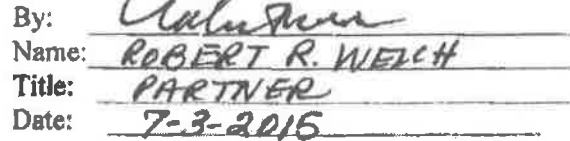 By:
Name: ROBERT R. WELCH
Title: PARTNER
Date: 7-3-2015